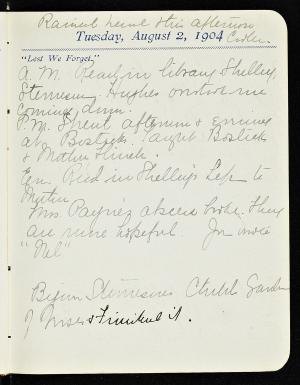 Rained hard this afternoon
Tuesday, August 2, 1904 Cooler.
"Lest We Forget."
A.M. Read in library, Shelley,
Stevenson. Hughes overtook me
coming down.
P.M. Spent afternoon & evening
at Bostick's. Taught Bostick
& Mother
Eve. Read in Shelley's Life to
Mother
Mrs. abscess broke. They
are more hopeful.
"Nel"
Begun Stevenson's Child's Garden
of Verses & finished it.